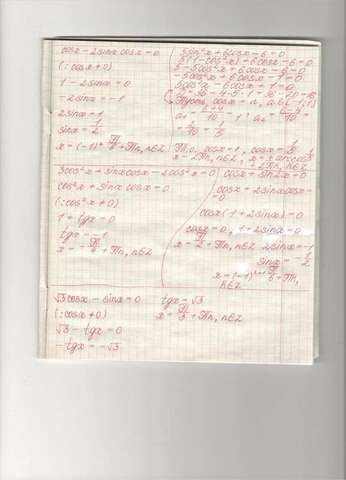 cosx - 2sinx cosx = 0
(: cosx ≠ 0)
1 - 2sinx = 0
-2sinx = -1
2sinx = 1
sinx = 1/2
x = (-1)ⁿ π/6 + πn, n∈Z
5sin²x + 6cosx - 6 = 0
5(1-cos²x) + 6cosx - 6 = 0
5 - 5cos²x + 6cosx - 6 = 0
-5cos²x + 6cosx - 1 = 0
5cos²x - 6cosx + 1 = 0
Пусть cosx = a,
Т.о. cosx = 1, cosx = 1/5
x = 2πn, n∈Z, x = ± arccos 1/5
+ 2πn, n∈Z
3cos²x + sinx cosx - 2cos²x = 0
cos²x + sinx cosx = 0
(: cos²x ≠ 0)
1 + tgx = 0
tgx = -1
x = - π/4 + πn, n∈Z
cosx + sin2x = 0
cosx + 2sinx cosx =
= 0
cosx (1 + 2sinx) = 0
cosx = 0, 1 + 2sinx = 0
x = π/2 + πn, n∈Z 2sinx = -1
sinx = - 1/2
x = (-1)ⁿ⁺¹ π/6 + πn,
n∈Z
√3 cosx - sinx = 0
(: cosx ≠ 0)
√3 - tgx = 0
- tgx = - √3
tgx = √3
x = π/3 + πn, n∈Z